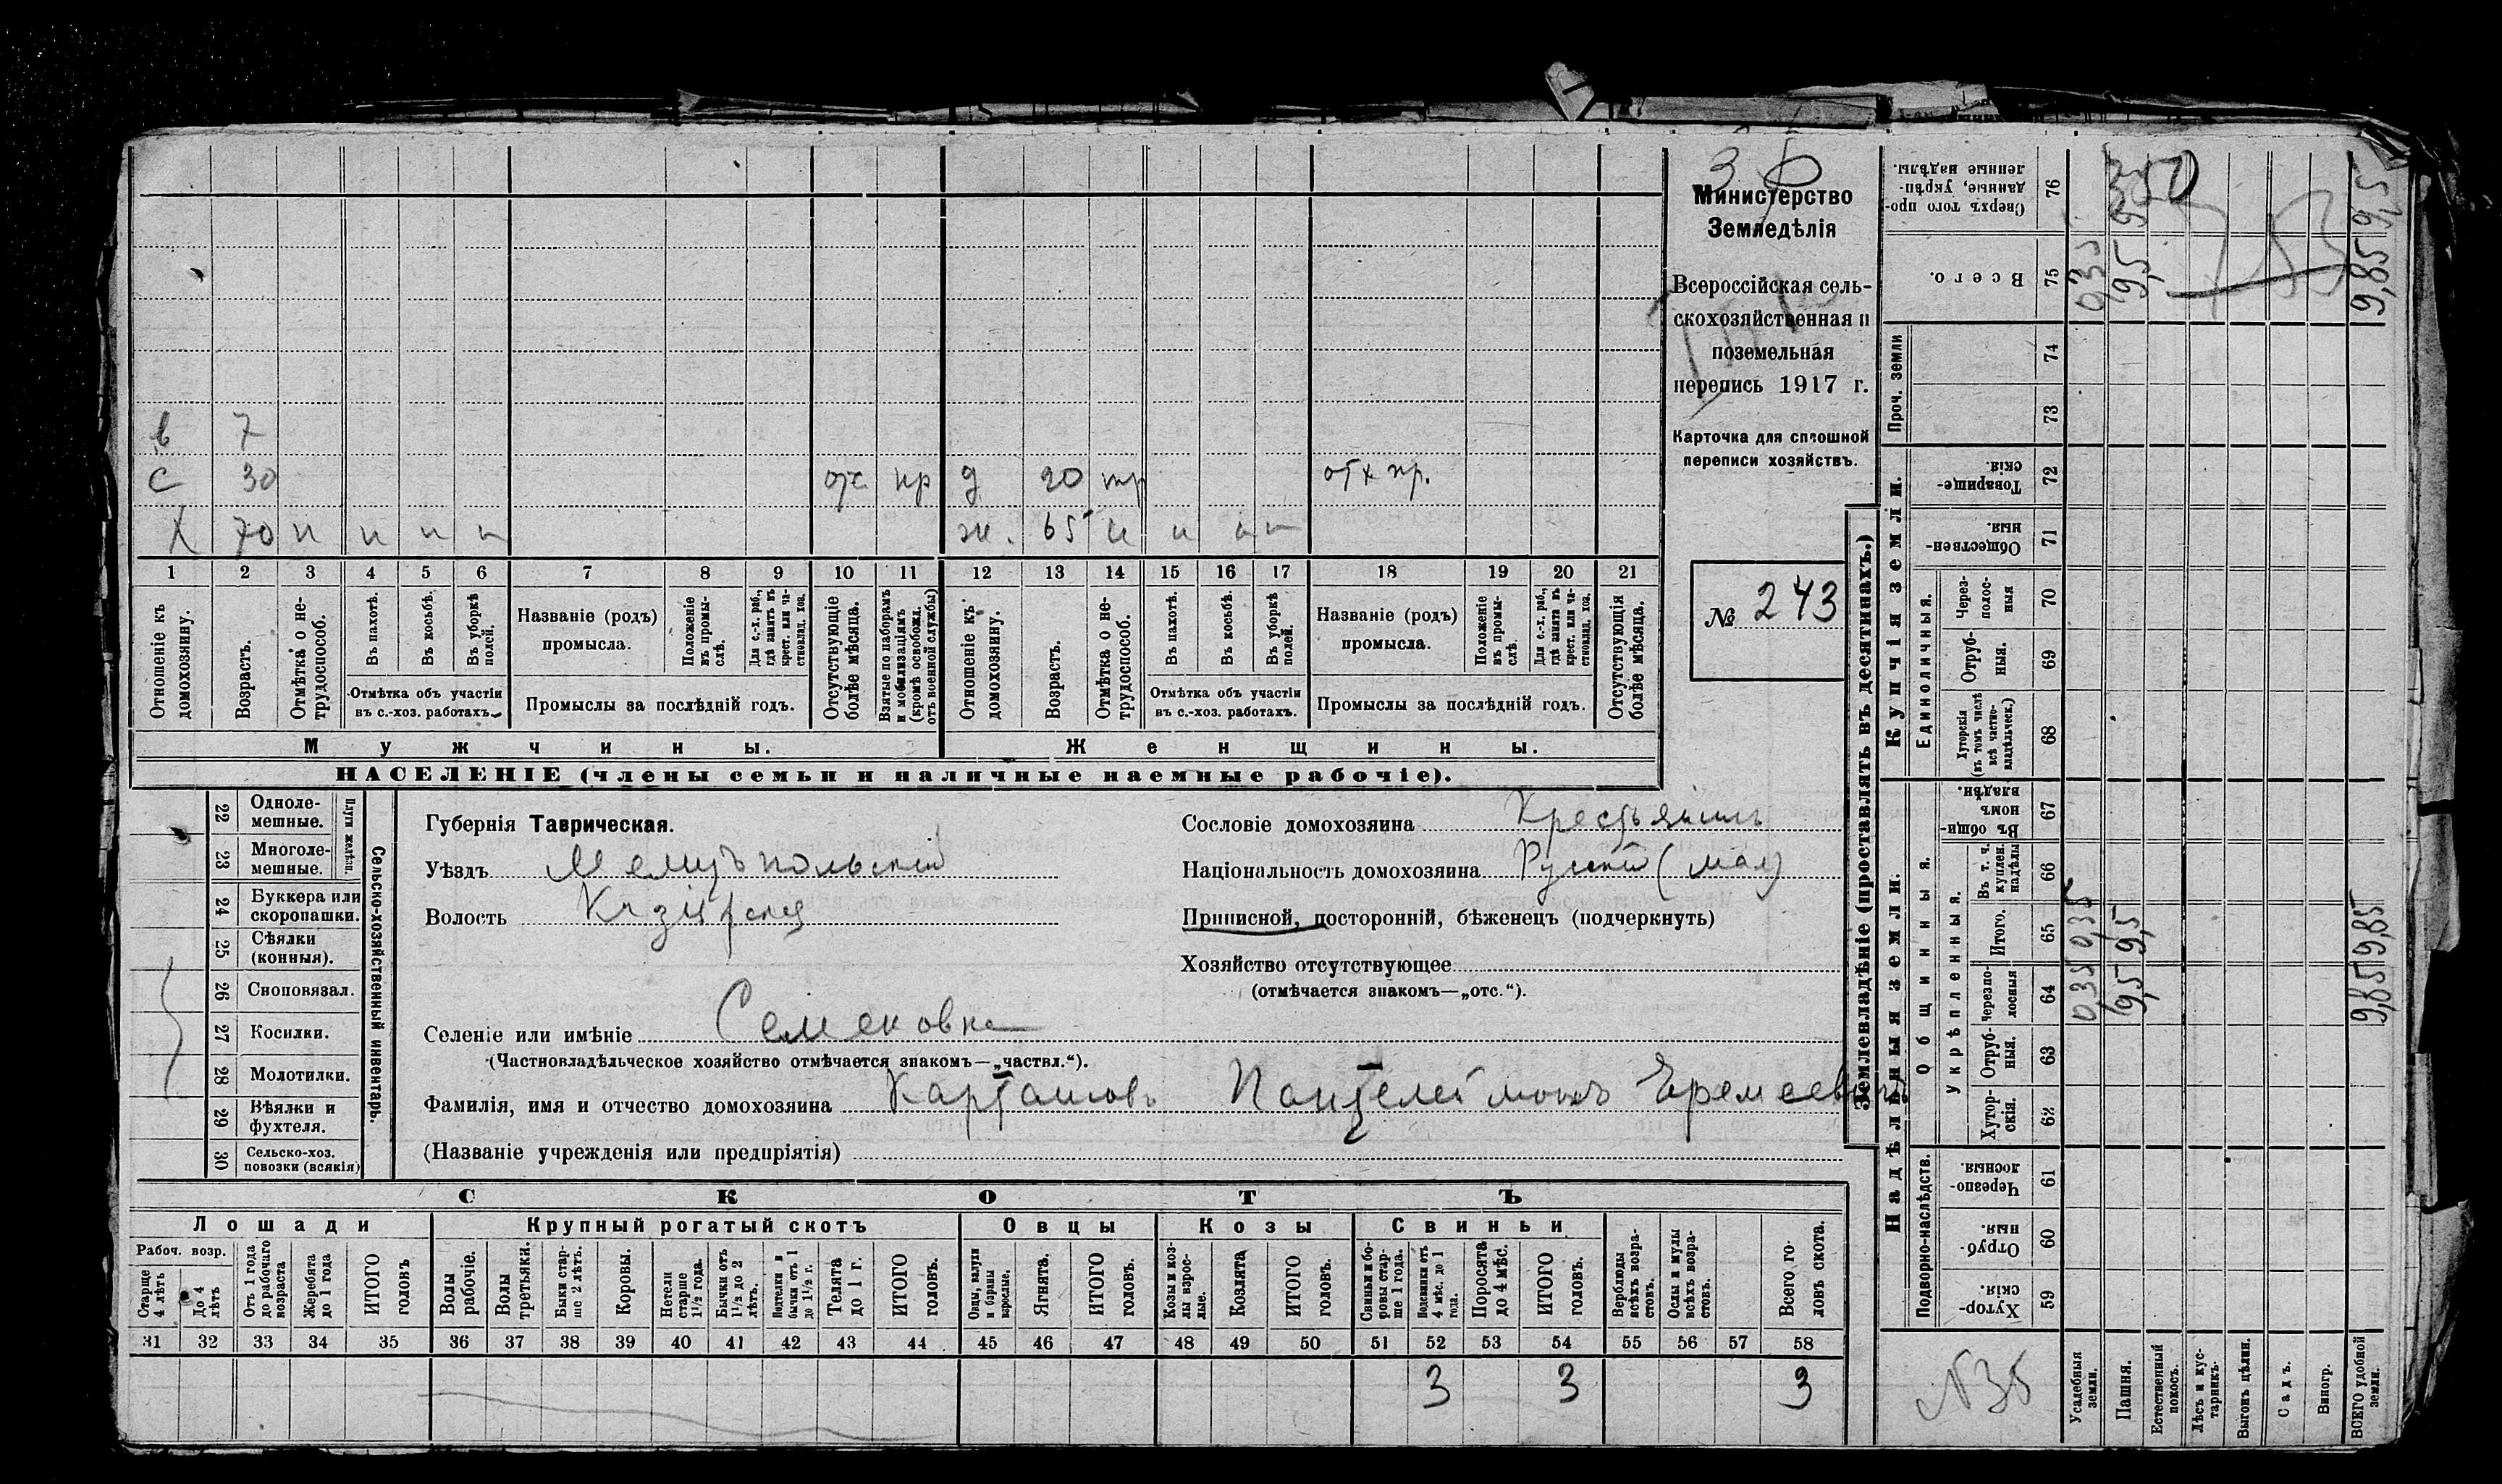 Министерство
Земледѣлія
Всероссійская сель-
скохозяйственная и
поземельная
перепись 1917 г.
Карточка для сплошной
переписи хозяйствъ.
№ 243
в 7
с 30 отх пр д 20 отх пр.
Х 70 н н н н ж. 65 н н н н
1 2 3 4 5 6 7 8 9 10 11 12 13 14 15 16 17 18 19 20 21
Отношеніе къ домохозяину.
Возрастъ.
Отмѣтка о не-трудоспособ.
Въ пахотѣ.
Въ косьбѣ.
Въ уборкѣ полей.
Отмѣтка объ участіи
въ с.-хоз. работахъ.
Названіе (родъ)
промысла.
Положеніе въ промы-слѣ.
Для с.-х. раб., гдѣ занятъ въ крест. или ча-стновлад. хоз.
Промыслы за послѣдній годъ.
Отсутствующіе болѣе мѣсяца.
Взятые по наборамъ и мобилизаціямъ (кромѣ освобожд. отъ военной службы)
Отношеніе къ домохозяину.
Возрастъ.
Отмѣтка о не-трудоспособ.
Въ пахотѣ.
Въ косьбѣ.
Въ уборкѣ полей.
Отмѣтка объ участіи
въ с.-хоз. работахъ.
Названіе (родъ)
промысла.
Положеніе въ промы-слѣ.
Для с.-х. раб., гдѣ занята въ крест. или ча-стновлад. хоз.
Промыслы за послѣдній годъ.
Отсутствующія болѣе мѣсяца.
Мужчины. Женщины.
НАСЕЛЕНІЕ (члены семьи и наличные наемные рабочіе).
Сельско-хозяйственный инвентарь.
Плуги желѣзн.
22 Одноле-мешные.
23 Многоле-мешные.
24 Буккера или скоропашки.
25 Сѣялки (конныя).
26 Сноповязал.
27 Косилки.
28 Молотилки.
29 Вѣялки и фухтеля.
30 Сельско-хоз. повозки (всякія)
Губернія Таврическая.
Уѣздъ Мелитопольскій
Волость
Селеніе или имѣніе Семеновка
(Частновладѣльческое хозяйство отмѣчается знакомъ—„частвл.“).
Фамилія, имя и отчество домохозяина Карташовъ Пантелеймонъ Еремеевичъ
(Названіе учрежденія или предпріятія)
Сословіе домохозяина Крестьянинъ
Національность домохозяина Русскій (мал)
Приписной, посторонній, бѣженецъ (подчеркнуть)
Хозяйство отсутствующее
(отмѣчается знакомъ—„отс.“).
СКОТЪ
Лошади Крупный рогатый скотъ Овцы Козы Свиньи
Рабоч. возр.
Старше 4 лѣтъ
До 4 лѣтъ
Отъ 1 года до рабочаго возраста
Жеребята до 1 года
ИТОГО головъ
Волы рабочіе.
Волы третьяки.
Быки стар-ше 2 лѣтъ.
Коровы.
Нетели старше 1½ года.
Бычки отъ 1½ до 2 лѣтъ.
Подтелки и бычки отъ 1 до 1½ г.
Телята до 1 г.
ИТОГО головъ.
Овцы, валухи и бараны взрослые.
Ягнята.
ИТОГО головъ.
Козы и коз-лы взрос-лые.
Козлята
ИТОГО головъ.
Свиньи и бо-ровы стар-ше 1 года.
Подсвинки отъ 4 мѣс. до 1 года.
Поросята до 4 мѣс.
ИТОГО головъ.
Верблюды всѣхъ возра-стовъ.
Ослы и мулы всѣхъ возра-стовъ.
Всего го-ловъ скота.
31 32 33 34 35 36 37 38 39 40 41 42 43 44 45 46 47 48 49 50 51 52 53 54 55 56 57 58
3 3 3
Землевладѣніе (проставлять въ десятинахъ.)
Надѣльныя земли. Купчія земли. Проч. земли
Подворно-наслѣдств.
Общинныя.
Укрѣпленныя.
Единоличныя.
Хутор-скія. 59
Отруб-ныя. 60
Черезпо-лосныя. 61
Хутор-скія. 62
Отруб-ныя. 63
Черезпо-лосныя 64
Итого. 65
Въ т. ч. куплен. надѣлы 66
Въ общин-номъ владѣн. 67
Хуторскія (въ томъ числѣ всѣ частно-владѣльческ.) 68
Отруб-ныя. 69
Через-полос-ныя 70
Обществен-ныя. 71
Товарище-скія. 72
73
74
Всего. 75
Сверхъ того про-данные, укрѣп-ленные надѣлы. 76
Усадебныя земли. 0,35 0,35 0,35
Пашня. 9,5 9,5 9,5
Естественный покосъ.
Лѣсъ и кус-тарникъ.
Выгонъ цѣлин.
Садъ.
Виногр.
ВСЕГО удобной земли. 9,85 9,85 9,85 9,5